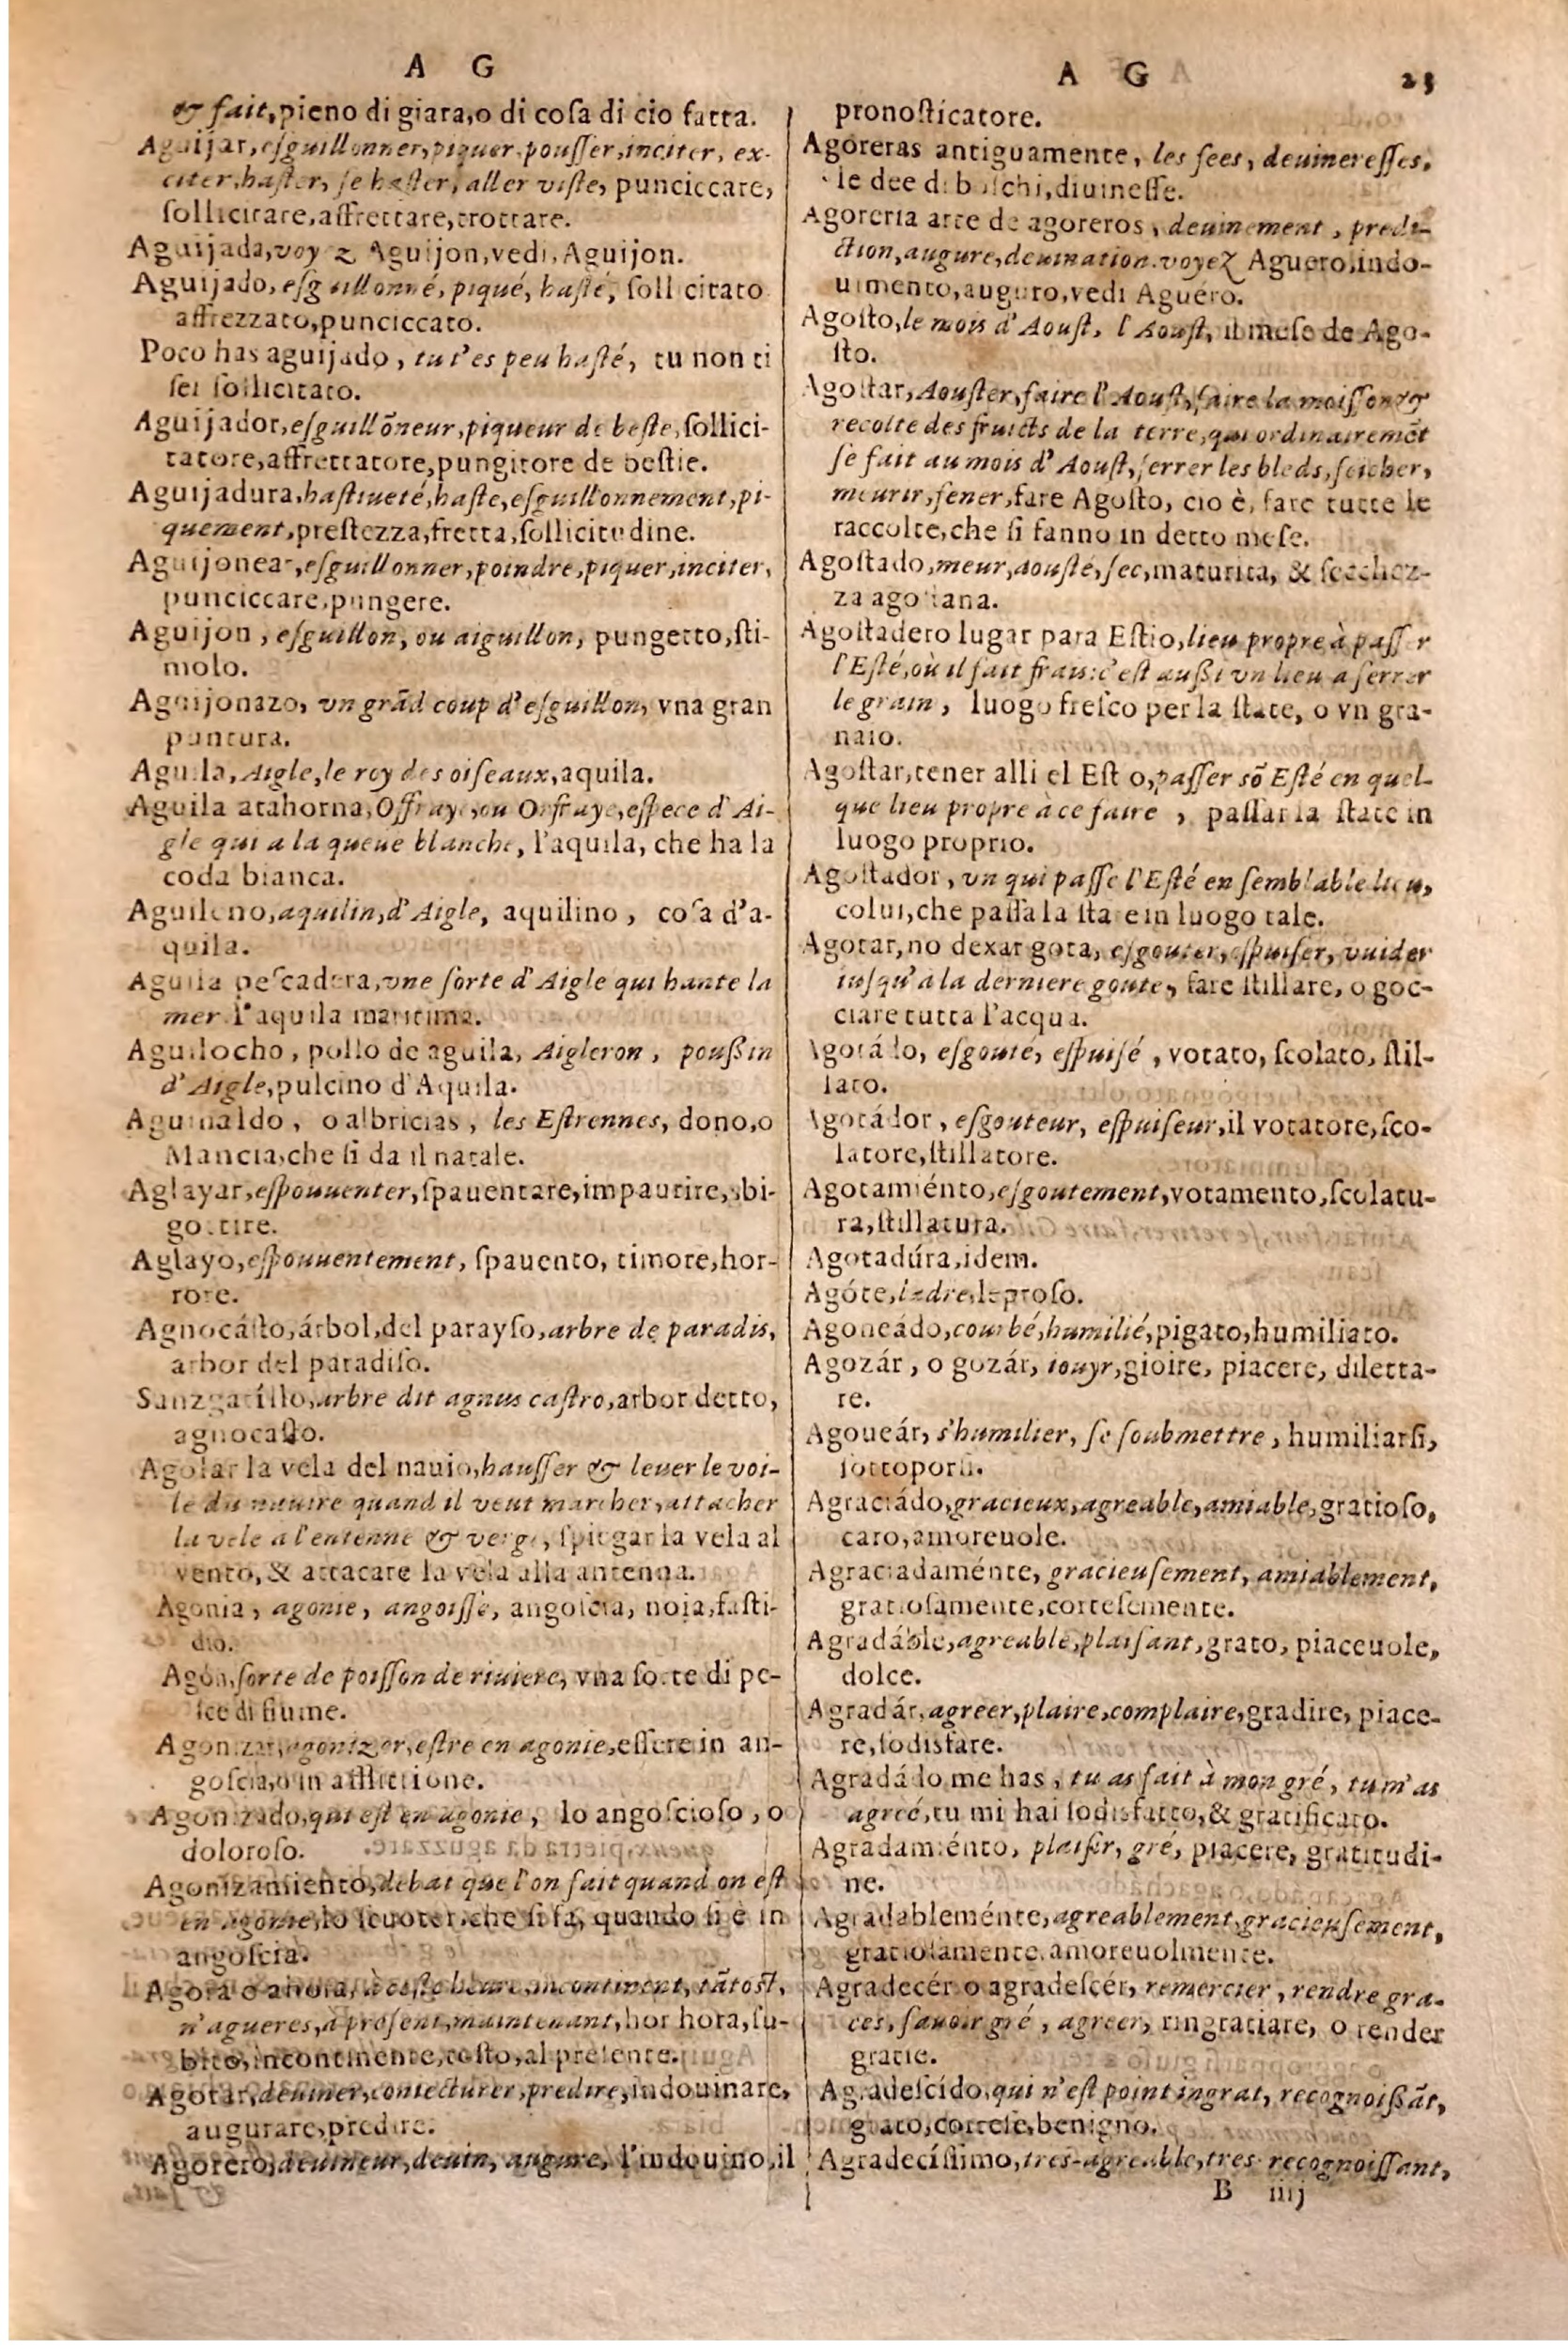 A G
& fait, pieno di giara, o di coſa di cio fatta.
Aguijar, eſguillonner, piquer, pouſſer, inciter, ex-
citer, haſter, ſe haſter, aller viſte, punciccare,
ſollicitare, affrettare, trottare.
Aguijada, voyez Aguijon, vedi, Aguijon.
Aguijado, eſguillonné, piqué, haſté, ſollicitato
affrezzato, punciccato.
Poco has aguijado, tu t'es peu haſté, tu non ti
ſei ſollicitato.
Aguijador, eſguillõneur, piqueur de beſte, ſollici-
tatore, affrettatore, pungitore de beſtie.
Aguijadura, haſtiueté, haſte, eſguillonnement, pi-
quement, preſtezza, fretta, ſollicitudine.
Aguijonear, eſguillonner, poindre, piquer, inciter,
punciccare, pungere.
Aguijon, eſguillon, ou aiguillon, pungetto, ſti-
molo.
Aguijonazo, vn grãd coup d'eſguillon, vna gran
puntura.
Aguila, Aigle, le roy des oiſeaux, aquila.
Aguila atahorna, Offraye, ou Orfraye, eſpece d'Ai-
gle qui a la queue blanche, l'aquila, che ha la
coda bianca.
Aguileno, aquilin, d'Aigle, aquilino, coſa d'a-
quila.
Aguila peſcadera, vne ſorte d'Aigle qui hante la
mer l'aquila maritima.
Aguilocho, pollo de aguila, Aigleron, poußin
d'Aigle, pulcino d'Aquila.
Aguinaldo, o albricias, les Eſtrennes, dono, o
Mancia, che ſi da il natale.
Aglayar, eſpouuenter, ſpauentare, impaurire, sbi-
gottire.
Aglayo, eſpouuentement, ſpauento, timore, hor-
rore.
Agnocáſto, árbol, del parayſo, arbre de paradis,
arbor del paradiſo.
Sauzgatíllo, arbre dit agnus caſtro, arbor detto,
agnocaſto.
Agolar la vela del nauio, hauſſer & leuer le voi-
le du nauire quand il veut marcher, attacher
la vele a l'entenne & verge, ſpiegar la vela al
vento, & attacare la vela alla antenna.
Agonia, agonie, angoiſſe, angoſcia, noia, faſti-
dio.
Agón, ſorte de poiſſon de riuiere, vna ſorte di pe-
ſce di fiume.
Agonizar, agonizer, eſtre en agonie, eſſere in an-
goſcia, o in afflittione.
Agonizado, qui eſt en agonie, lo angoſcioſo, o
doloroſo.
Agonizamiento, debat que l'on fait quand on eſt
en agonie, lo ſcuoter, che ſi fa, quando ſi è in
angoſcia.
Agora o ahora, à ceſte heure, incontinent, tãtoſt,
n'agueres, a preſent, maintenant, hor hora, ſu-
bito, incontinente, toſto, al preſente.
Agorar, deuiner, coniecturer, predire, indouinare,
augurare, predire.
Agorero, deuineur, deuin, augure, l'indouino, il
A G 23
pronoſticatore.
Agoreras antiguamente, les fees, deuinereſſes,
le dee di boſchi, diuineſſe.
Agoreria arte de agoreros, deuinement, predi-
ction, augure, deuination. voyez Aguero, indo-
uimento, auguro, vedi Aguéro.
Agoſto, le mois d'Aouſt, l'Aouſt, il meſe de Ago-
ſto.
Agoſtar, Aouſter, faire l'Aouſt, faire la moiſſon &
recolte des fruicts de la terre, qui ordinairemẽt
ſe fait au mois d'Aouſt, ſerrer les bleds, ſeicher,
meurir, fener, fare Agoſto, cio è, fare tutte le
raccolte, che ſi fanno in detto meſe.
Agoſtado, meur, aouſté, ſec, maturita, & ſecchez-
za agoſtana.
Agoſtadero lugar para Eſtio, lieu propre à paſſer
l'Eſté, où il fait frais: c'eſt außi vn lieu a ſerrer
le grain, luogo freſco per la ſtate, o vn gra-
naio.
Agoſtar, tener alli el Eſtio, paſſer sõ Eſté en quel-
que lieu propre à ce faire, paſſar la ſtate in
luogo proprio.
Agoſtador, vn qui paſſe l'Eſté en ſemblable lieu,
colui, che paſſa la ſtate in luogo tale.
Agotar, no dexar gota, eſgouter, eſpuiſer, vuider
iuſqu'a la derniere goute, fare ſtillare, o goc-
ciare tutta l'acqua.
Agotádo, eſgouté, eſpuiſé, votato, ſcolato, ſtil-
lato.
Agotádor, eſgouteur, eſpuiſeur, il votatore, ſco-
latore, ſtillatore.
Agotamiénto, eſgoutement, votamento, ſcolatu-
ra, ſtillatura.
Agotadúra, idem.
Agóte, ladre, leproſo.
Agoneádo, courbé, humilié, pigato, humiliato.
Agozár, o gozár, iouyr, gioire, piacere, diletta-
re.
Agoueár, s'humilier, ſe ſoubmettre, humiliarſi,
ſottoporſi.
Agraciádo, gracieux, agreable, amiable, gratioſo,
caro, amoreuole.
Agraciadaménte, gracieuſement, amiablement,
gratioſamente, corteſemente.
Agradáble, agreable, plaiſant, grato, piaceuole,
dolce.
Agradár, agreer, plaire, complaire, gradire, piace-
re, ſodisfare.
Agradádo me has, tu as fait à mon gré, tu m'as
agreé, tu mi hai ſodisfatto, & gratificato.
Agradamiénto, plaiſir, gré, piacere, gratitudi-
ne.
Agradableménte, agreablement, gracieuſement,
gratioſamente, amoreuolmente.
Agradecér o agradeſcér, remercier, rendre gra-
ces, ſauoir gré, agreer, ringratiare, o render
gratie.
Agradeſcído, qui n'eſt point ingrat, recognoißãt,
grato, corteſe, benigno.
Agradecíſſimo, tres-agreable, tres-recognoiſſant,
B iiij